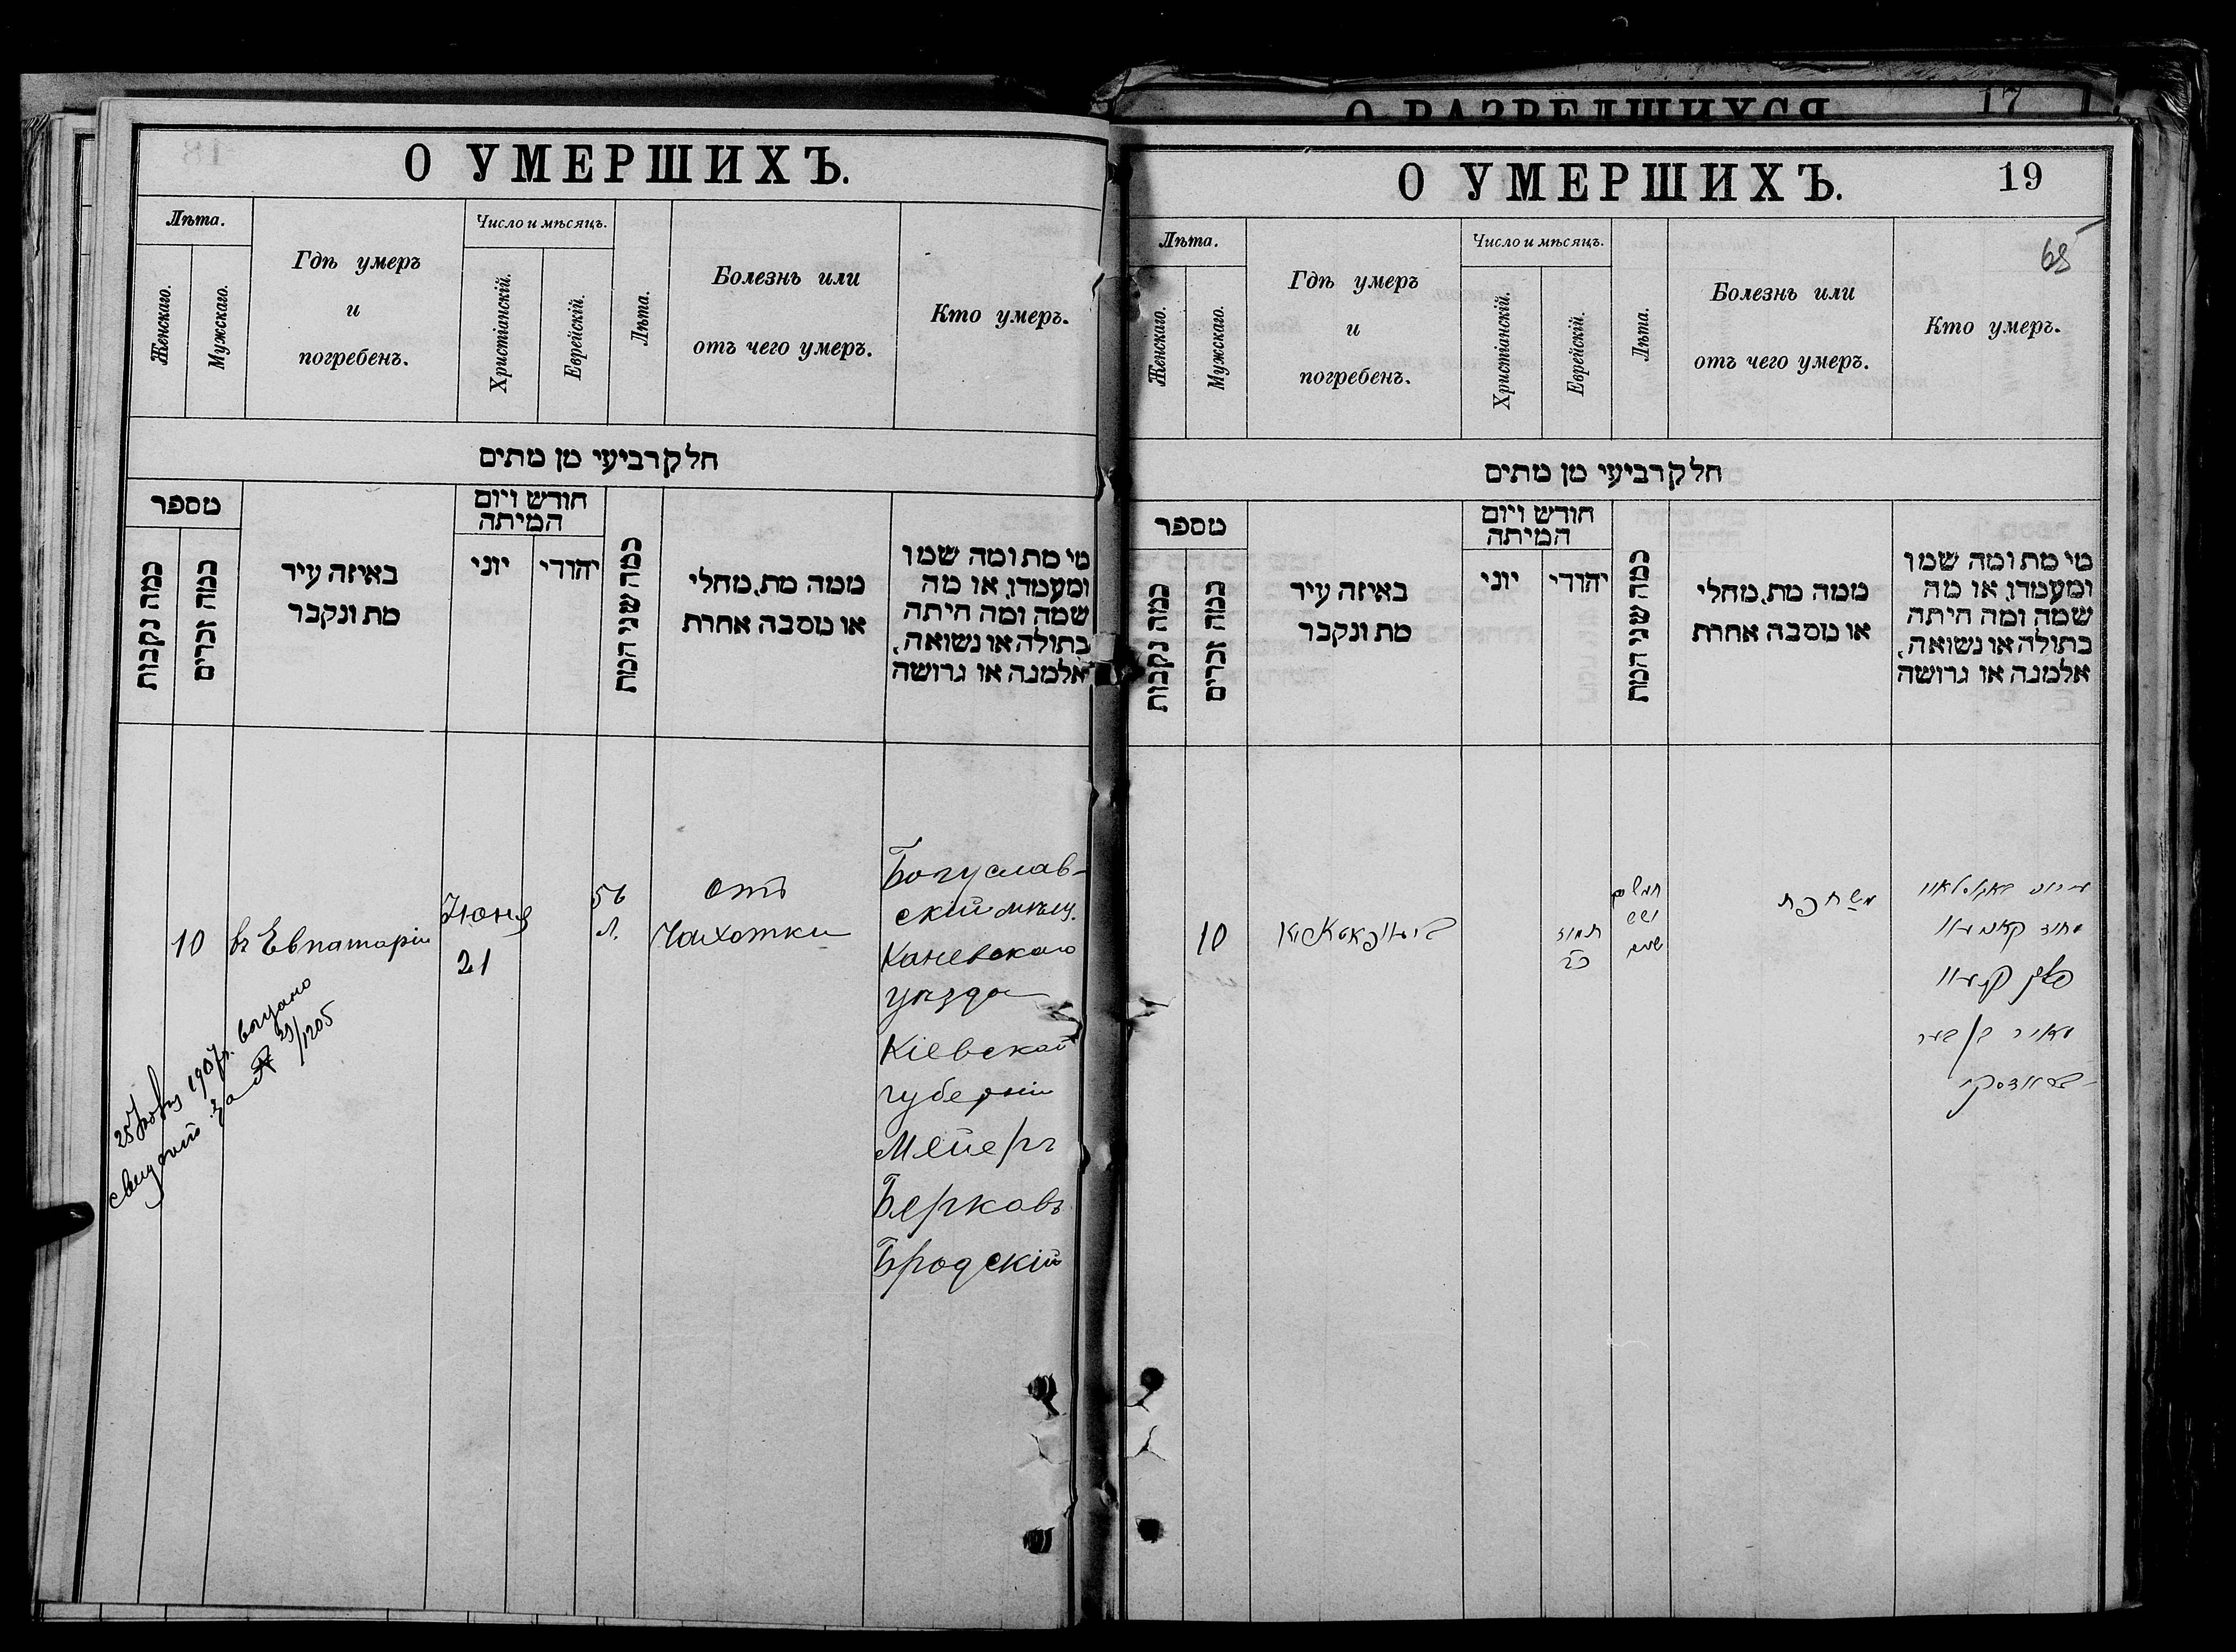 О РАЗВЕДШИХСЯ 17
О УМЕРШИХЪ.
Лѣта.
Женскаго.
Мужскаго.
Гдѣ умеръ
и
погребенъ.
Число и мѣсяцъ.
Христіанскій.
Еврейскій.
Лѣта.
Болезнь или
отъ чего умеръ.
Кто умеръ.
חלק רביעי מן מתים
מספר
כמה נקבות
כמה זכרים
באיזה עיר
מת ונקבר
חודש ויום
המיתה
יוני
יהודי
כמה שני המת
ממה מת, מחלי
או מסבה אחרת
מי מת ומה שמו
ומעמדו, או מה
שמה ומה היתה
בתולה או נשואה,
אלמנה או גרושה
10
въ Евпаторіи
Іюня
21
56
л.
отъ
Чахотки
Богуслав-
скій мѣщ.
Каневскаго
уѣзда
Кіевской
губерніи
Мейеръ
Берковъ
Бродскій
25 1907г. выдано
за № 29/1205
О УМЕРШИХЪ.
19
68
Лѣта.
Женскаго.
Мужскаго.
Гдѣ умеръ
и
погребенъ.
Число и мѣсяцъ.
Христіанскій.
Еврейскій.
Лѣта.
Болезнь или
отъ чего умеръ.
Кто умеръ.
חלק רביעי מן מתים
מספר
כמה נקבות
כמה זכרים
באיזה עיר
מת ונקבר
חודש ויום
המיתה
יוני
יהודי
כמה שני המת
ממה מת, מחלי
או מסבה אחרת
מי מת ומה שמו
ומעמדו, או מה
שמה ומה היתה
בתולה או נשואה,
אלמנה או גרושה
10
תמוז
חמשים
ושש
שנים
משחפת
מאיר בן בער